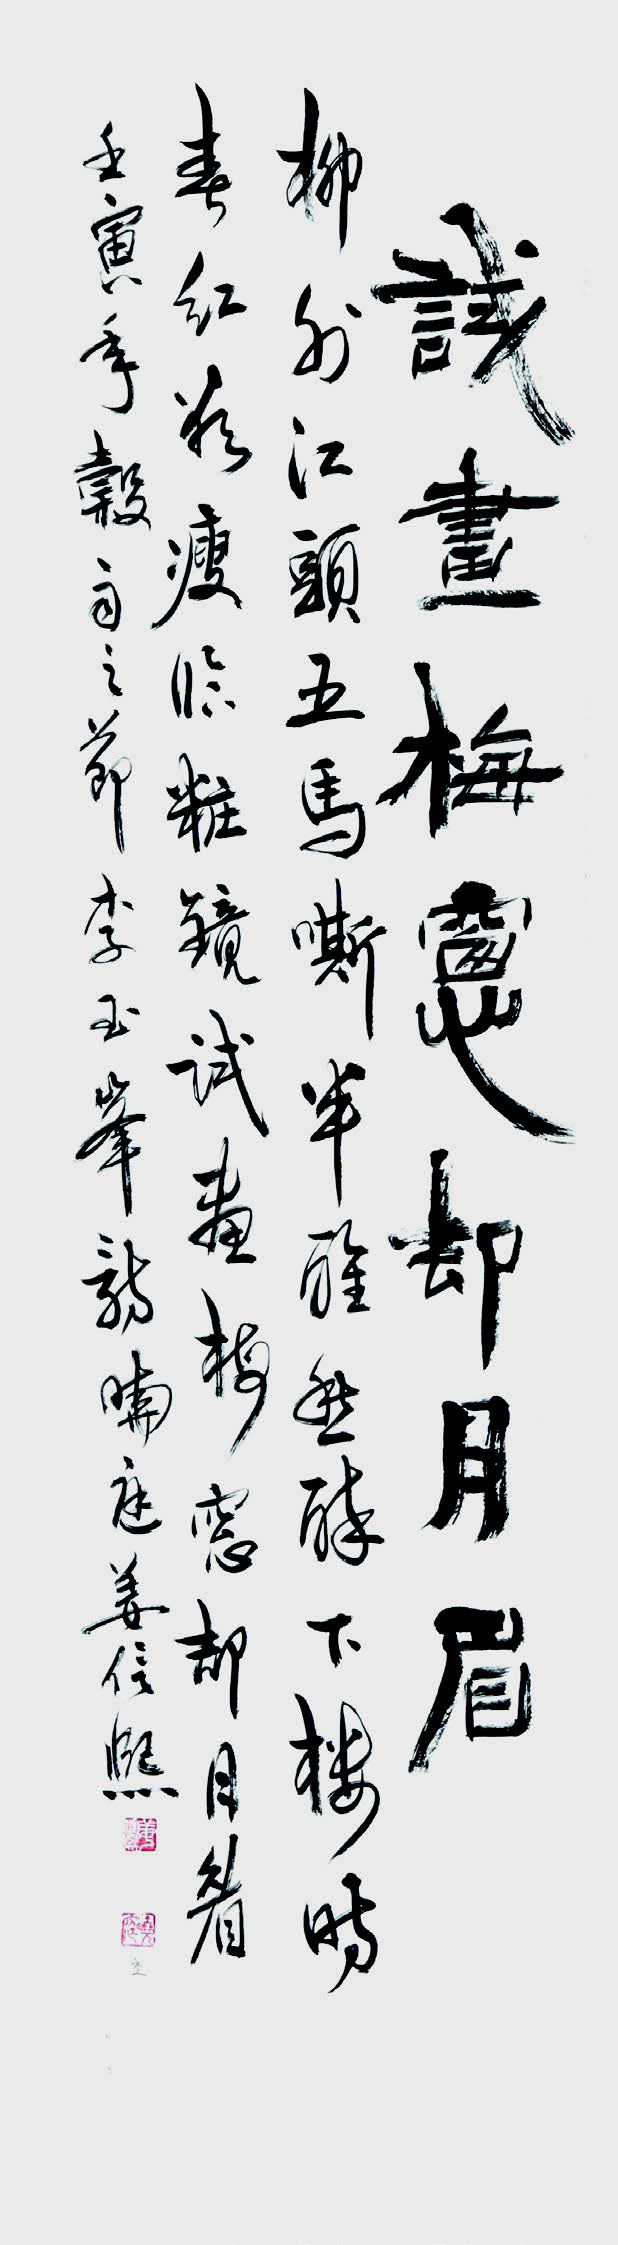 試畫梅窻却月眉
柳外江頭五馬嘶半醒愁醉下樓時
春紅欲瘦臨粧鏡試畫梅窓却月眉
壬寅年穀雨之節李玉峯詩曉庭姜信熙